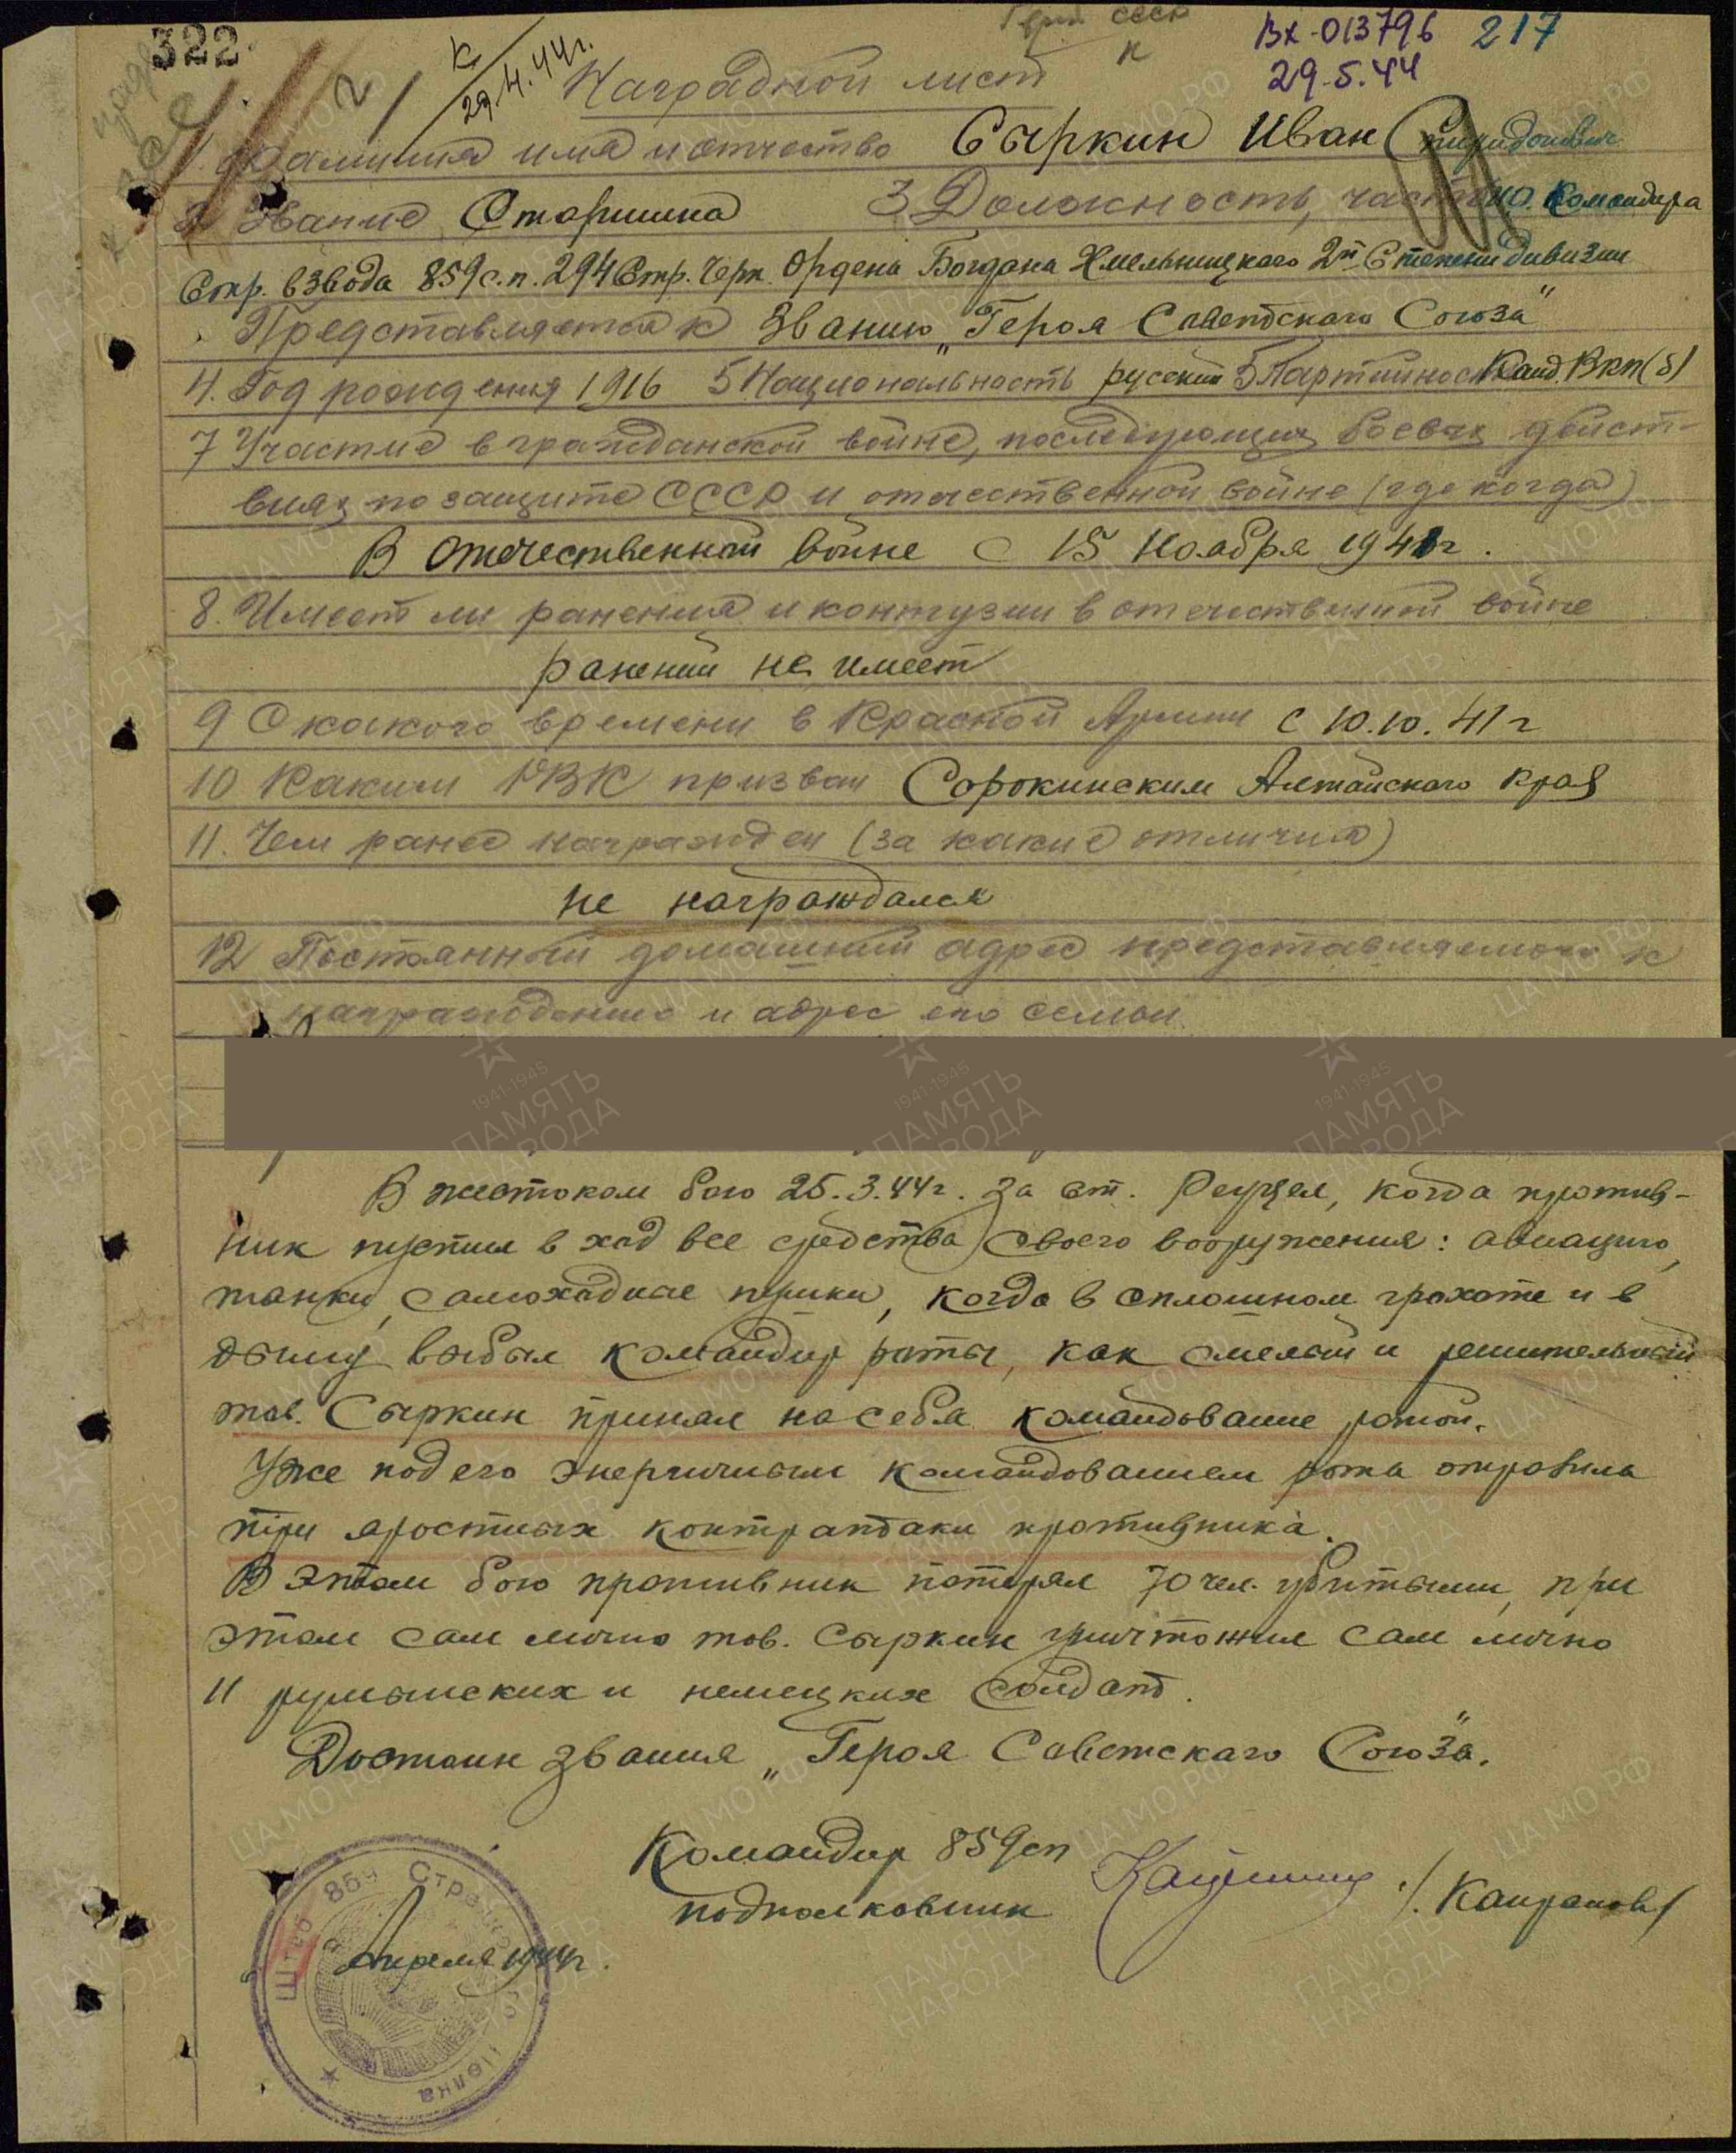 322
Вх-013796 217
29.5.44
К
29.4.44г.
Наградной лист
1. Фамилия имя и отчество Сыркин Иван Спиридонович
2 Звание Старшина 3 Должность, часть ио. Командира
Стр. взвода 859 с.п. 294 Стр. Черк. Ордена Богдана Хмельницкого 2й Степени дивизии
Представляется к Званию „Героя Советского Союза"
4. Год рождения 1916 5 Национальность русский 5 Партийность Канд. ВКП(б)
7 Участие в гражданской войне, последующих боевых дейст-
виях по защите СССР и отечественной войне (где когда)
В отечественной войне с 15 Ноября 1941г.
8. Имеет ли ранения и контузии в отечественной войне
ранений не имеет
9 С какого времени в Красной Армии с 10.10.41г
10 Каким РВК призван Сорокинским Алтайского края
11. Чем ранее награжден (за какие отличия)
не награждался
12 Постоянный домашний адрес представляемого к
награждению и адрес его семьи
В жестоком бою 25.3.44г. за ст. Реуцел, когда против-
ник пустил в ход все средства своего вооружения: авиацию,
танки, самоходные пушки, когда в сплошном грохоте и в
дыму выбыл командир роты, как смелый и решительный
тов. Сыркин принял на себя командование ротой.
Уже под его энергичным командованием рота отразила
три яростных контратаки противника.
В этом бою противник потерял 70 чел. убитыми, при
этом сам лично тов. Сыркин уничтожил сам лично
11 румынских и немецких солдат.
Достоин звания „Героя Советского Союза".
Командир 859 сп
подполковник /Каирапов/
Апреля 1944г.
Штаб 859 Стрелкового полка
ЦА МО РФ
1941-1945
ПАМЯТЬ
НАРОДА